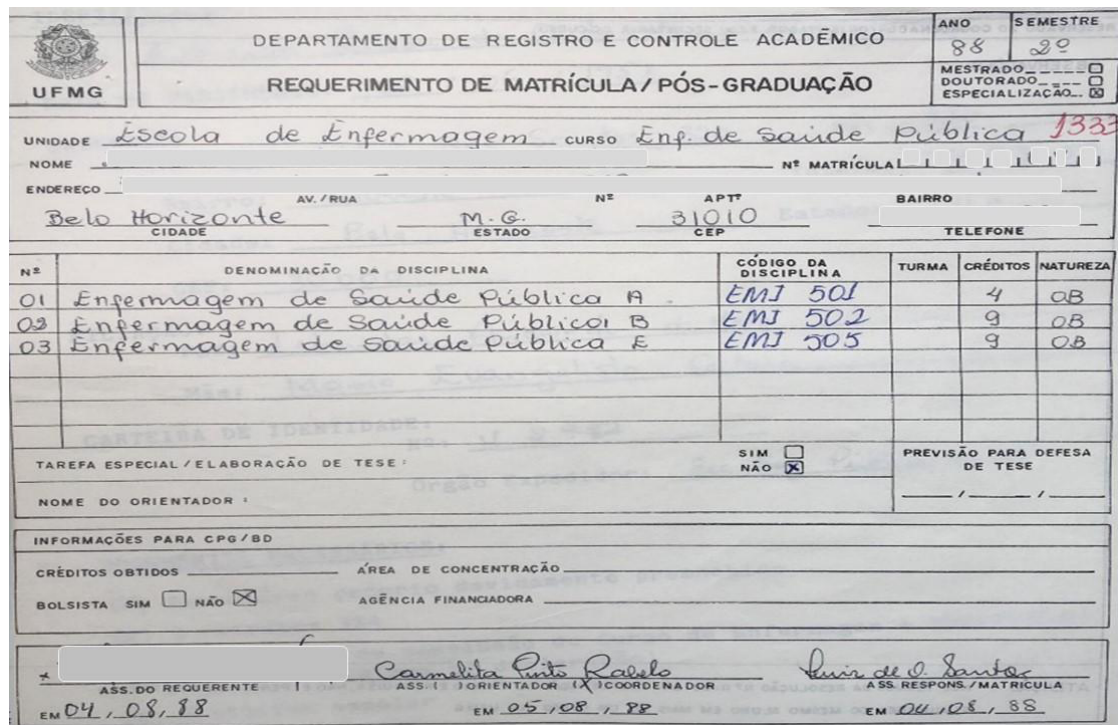 UFMG
DEPARTAMENTO DE REGISTRO E CONTROLE ACADÊMICO
REQUERIMENTO DE MATRÍCULA / PÓS-GRADUAÇÃO
ANO SEMESTRE
88 2º
MESTRADO
DOUTORADO
ESPECIALIZAÇÃO ☒
UNIDADE Escola de Enfermagem CURSO Enf. de Saúde Pública 1333
NOME Nº MATRÍCULA
ENDEREÇO
AV. / RUA Nº APTº BAIRRO
Belo Horizonte M.G. 31010
CIDADE ESTADO CEP TELEFONE
Nº DENOMINAÇÃO DA DISCIPLINA CÓDIGO DA DISCIPLINA TURMA CRÉDITOS NATUREZA
01 Enfermagem de Saúde Pública A EMI 501 4 OB
02 Enfermagem de Saúde Pública B EMI 502 9 OB
03 Enfermagem de Saúde Pública E EMI 505 9 OB
TAREFA ESPECIAL / ELABORAÇÃO DE TESE: SIM ☐ NÃO ☒ PREVISÃO PARA DEFESA DE TESE
NOME DO ORIENTADOR: / /
INFORMAÇÕES PARA CPG/BD
CRÉDITOS OBTIDOS ÁREA DE CONCENTRAÇÃO
BOLSISTA SIM ☐ NÃO ☒ AGÊNCIA FINANCIADORA
Carmelita Pinto Rabelo Luis de O. Santos
ASS. DO REQUERENTE ASS. ( ) ORIENTADOR (X) COORDENADOR ASS. RESPONS./MATRÍCULA
EM 04, 08, 88 EM 05, 08, 88 EM 04, 08, 88